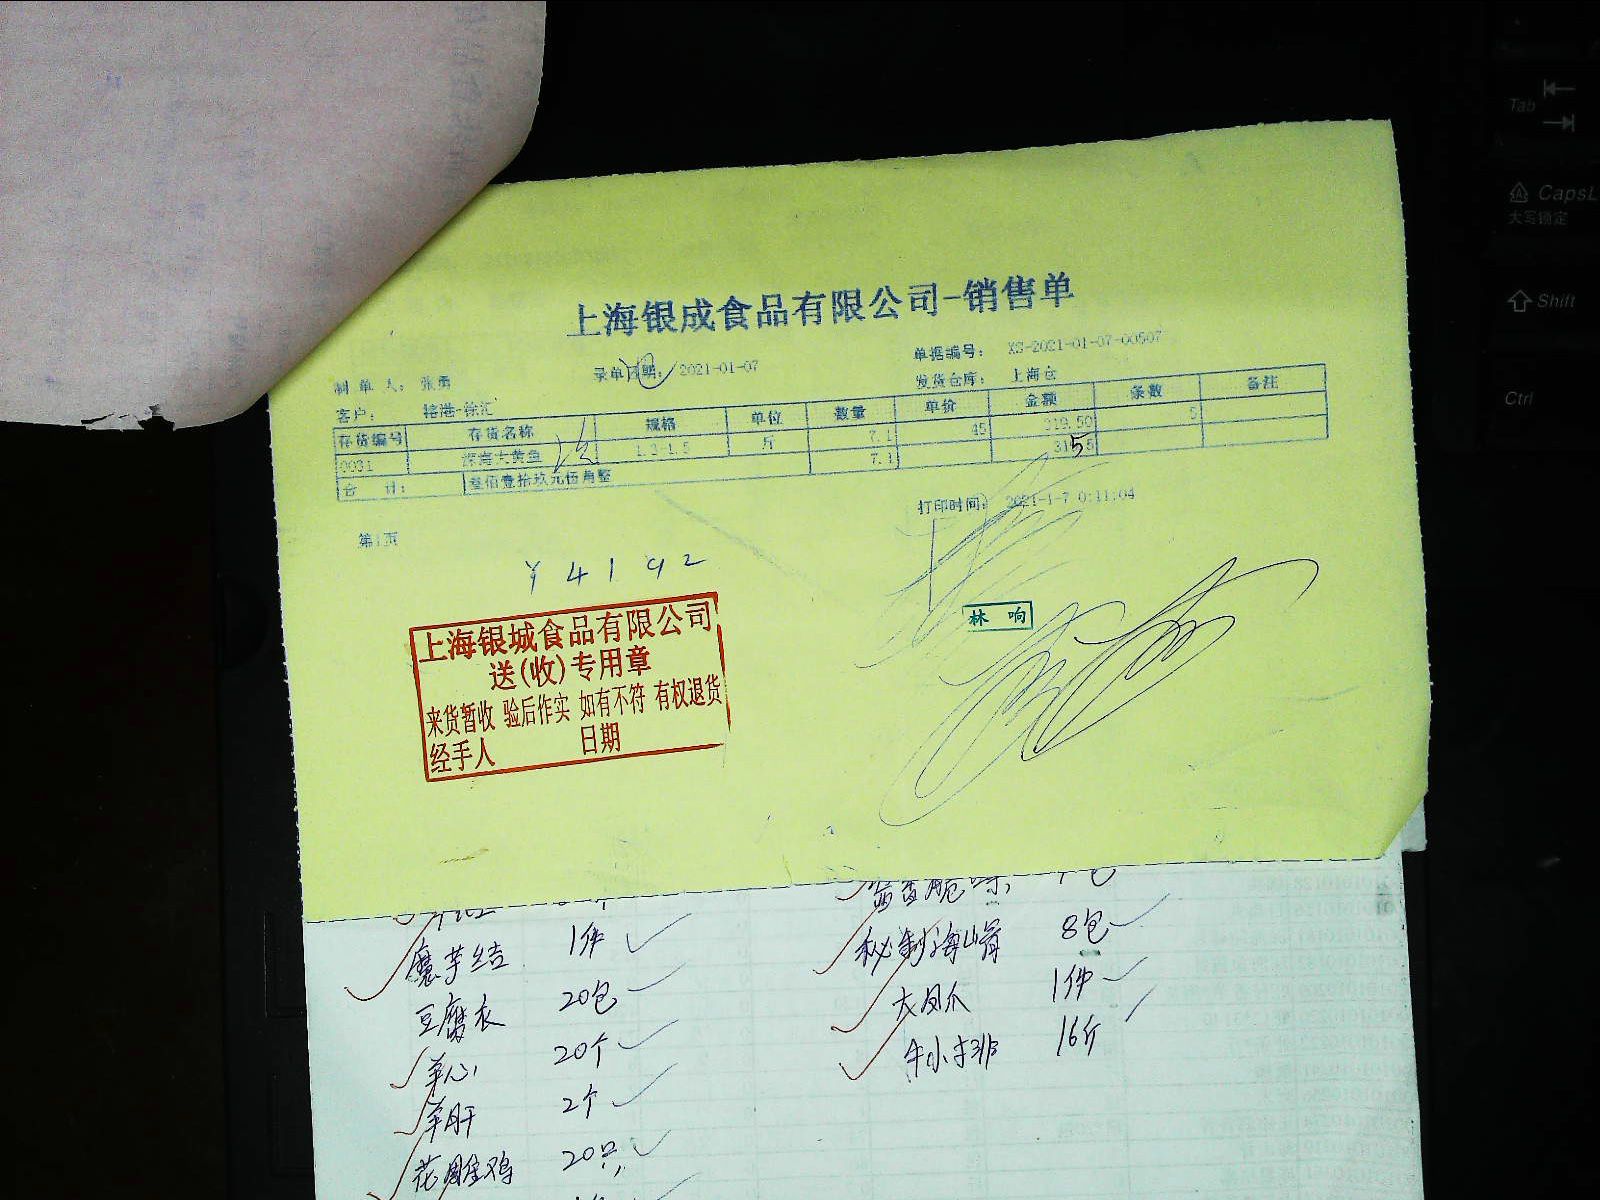 上海银成食品有限公司-销售单
制 单 人: 张勇 录单日期: 2021-01-07 单据编号: XS-2021-01-07-00507
客户: 榕港-徐汇 发货仓库: 上海仓
存货编号 存货名称 规格 单位 数量 单价 金额 条数 备注
0031 深海大黄鱼 1.2-1.5 斤 7.1 45 319.50 5
合 计: 叁佰壹拾玖元伍角整 7.1
第1页 打印时间: 2021-1-7 0:11:04
¥ 4192
上海银城食品有限公司
送(收)专用章
来货暂收 验后作实 如有不符 有权退货
经手人 日期
林 响
魔芋结 1件
豆腐衣 20包
羊心 20个
羊肝 2个
花雕鸡 20只
8包
大凤爪 1件
牛小排 16斤
Tab
CapsL
大写锁定
Shift
Ctrl